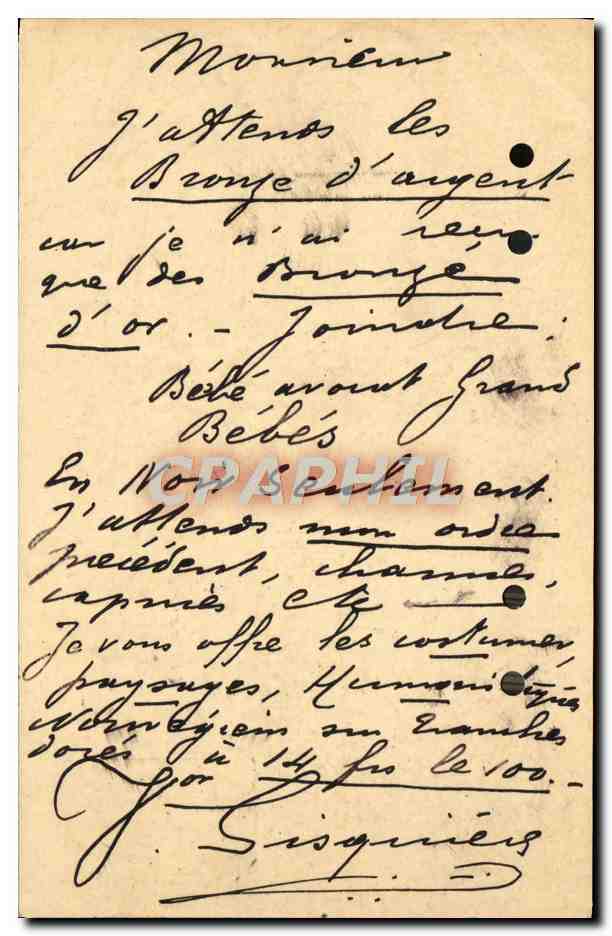 Monsieur
J'attends les
Bronze d'argent
car je n'ai reçu
que des Bronzé
d'or. - Joindre :
Bébé avocat Grand
Bébés
En Noir Seulement.
J'attends mon ordre
précédent, charmes,
caprices etc
Je vous offre les costumes,
paysages,
Norvégiens sur Tranches
dorés à 14 frs le 100. -
CPAPHIL